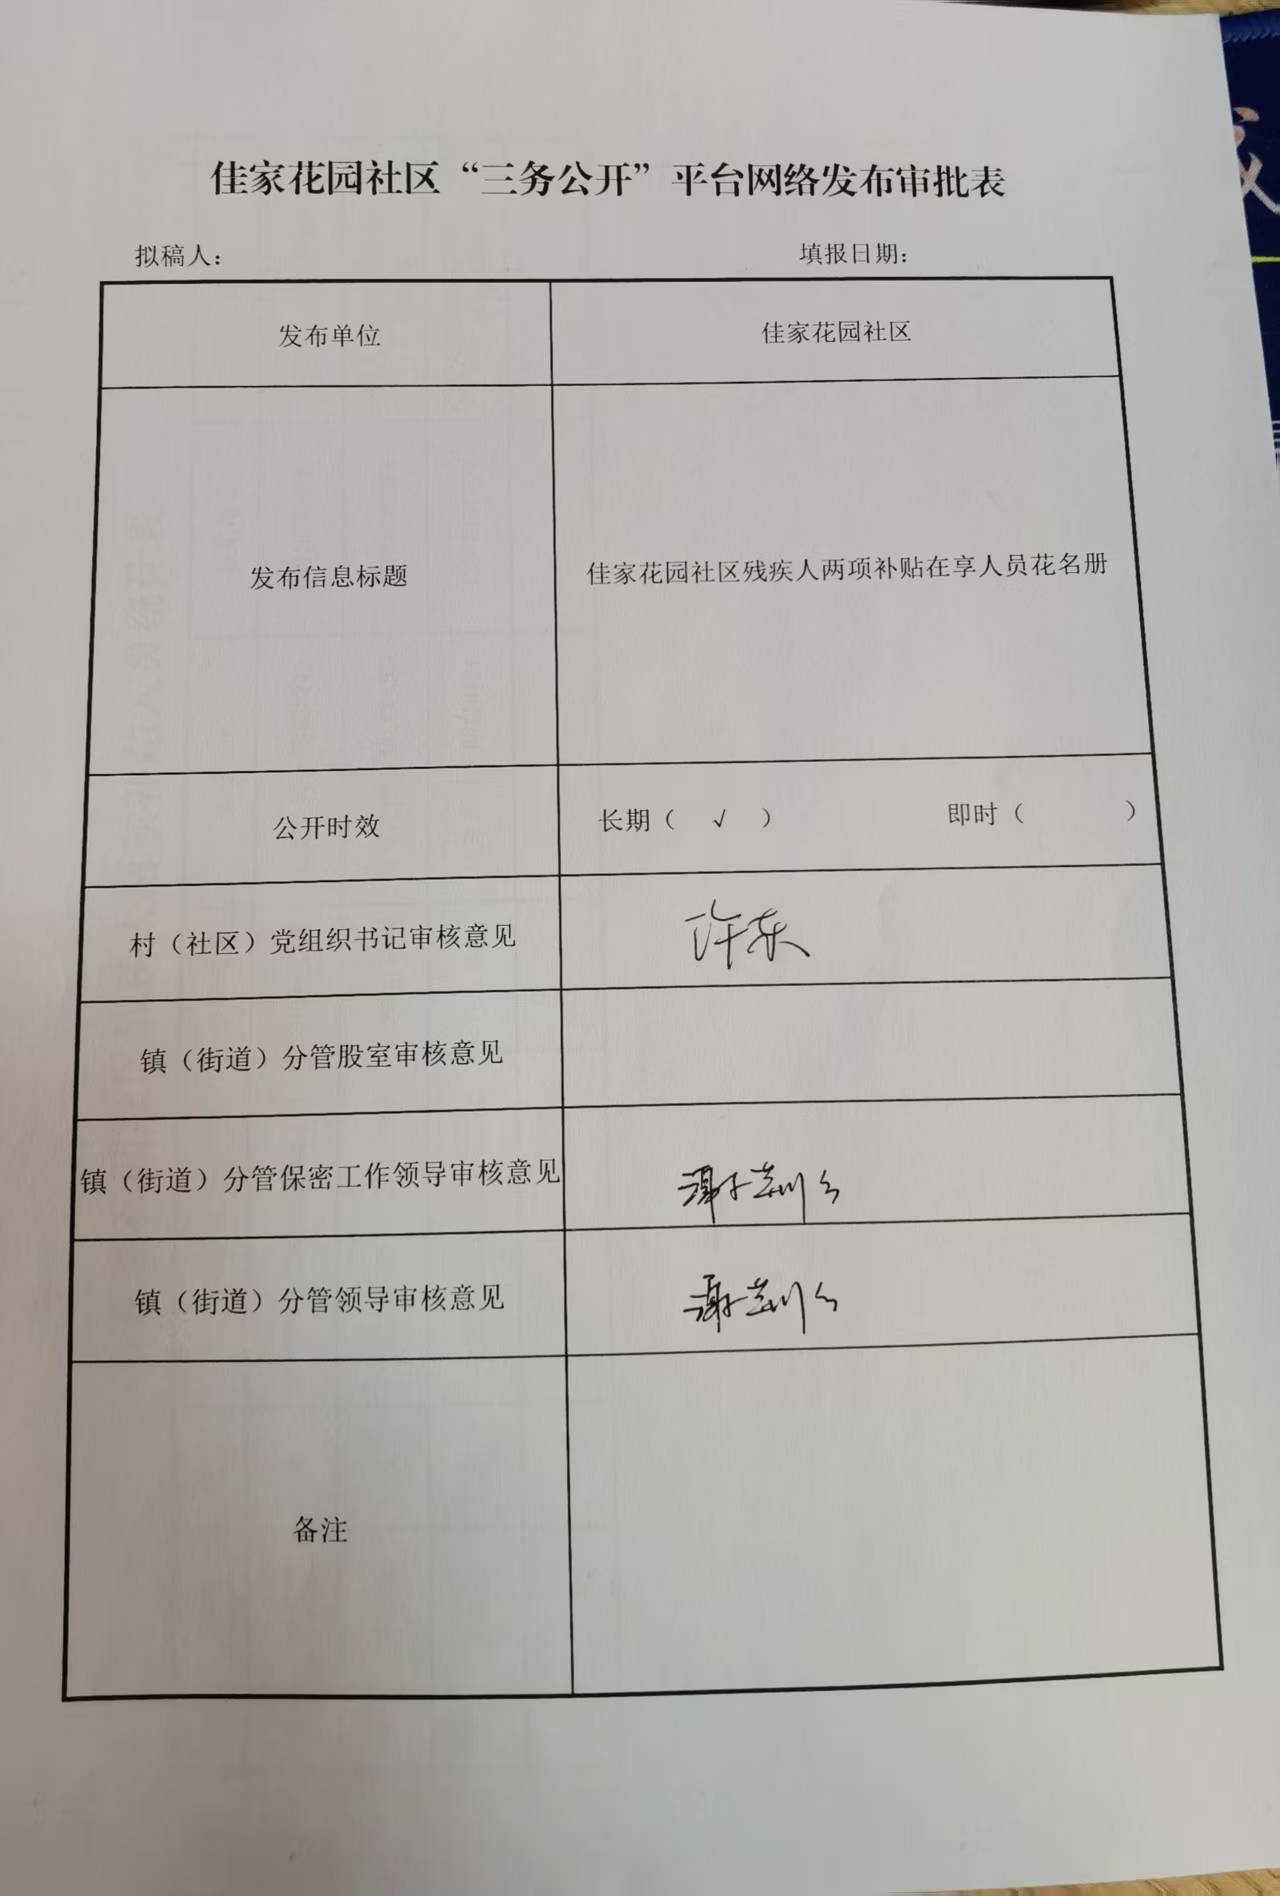 佳家花园社区“三务公开”平台网络发布审批表
拟稿人： 填报日期：
发布单位 佳家花园社区
发布信息标题 佳家花园社区残疾人两项补贴在享人员花名册
公开时效 长期（ √ ） 即时（ ）
村（社区）党组织书记审核意见 许东
镇（街道）分管股室审核意见
镇（街道）分管保密工作领导审核意见
镇（街道）分管领导审核意见
备注